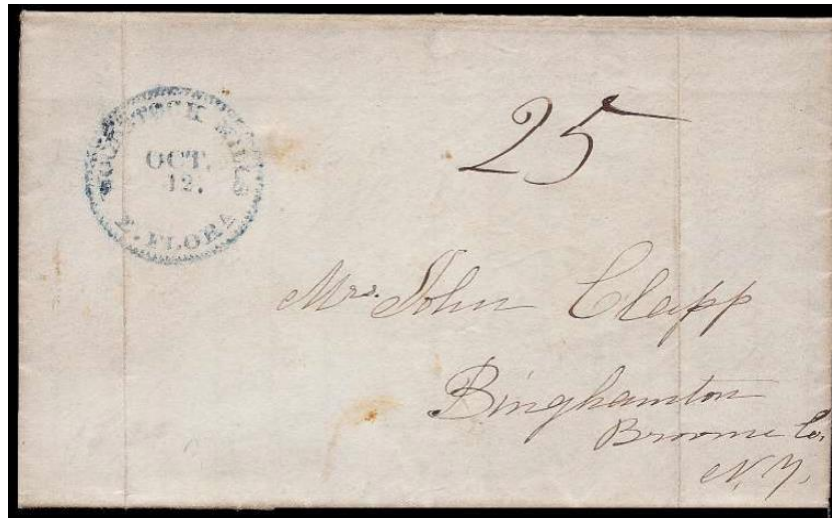 MILLS
OCT.
12.
E. FLORA
25
Mrs. John Clapp
Binghamton
Broome Co.
N.Y.